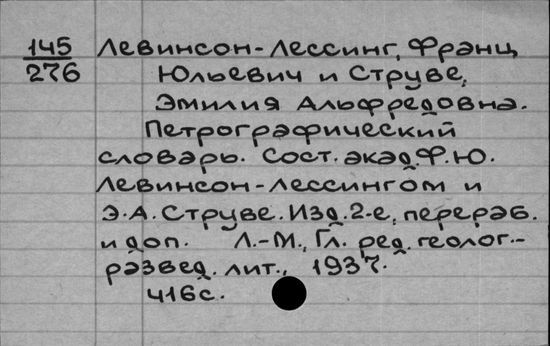 145 Левинсон-Лессинг, Франц
276 Юльевич и Струве,
Эмилия Альфредовна.
Петрографический
словарь. Сост. акад. Ф.Ю.
Левинсон-Лессингом и
Э.А. Струве. Изд. 2-е, перераб.
и доп. Л.-М., Гл. ред. геолог.-
развед. лит., 1937.
416 с.